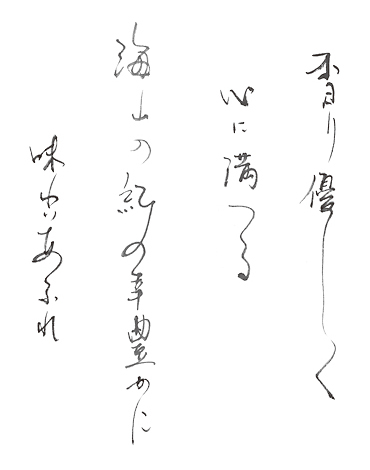 香り優しく
心に満つる
海山の紀の幸豊かに
味わいあふれ